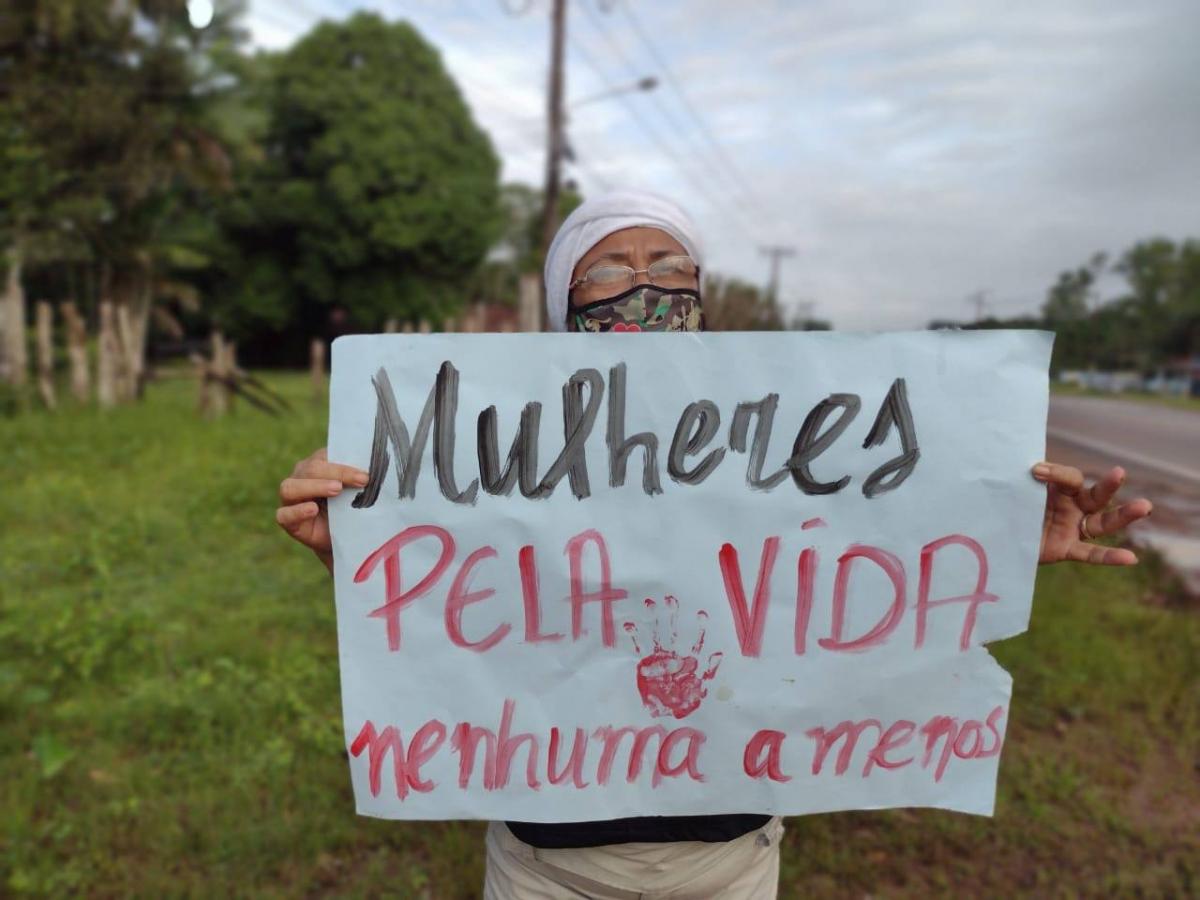 Mulheres
PELA VIDA
nenhuma a menos